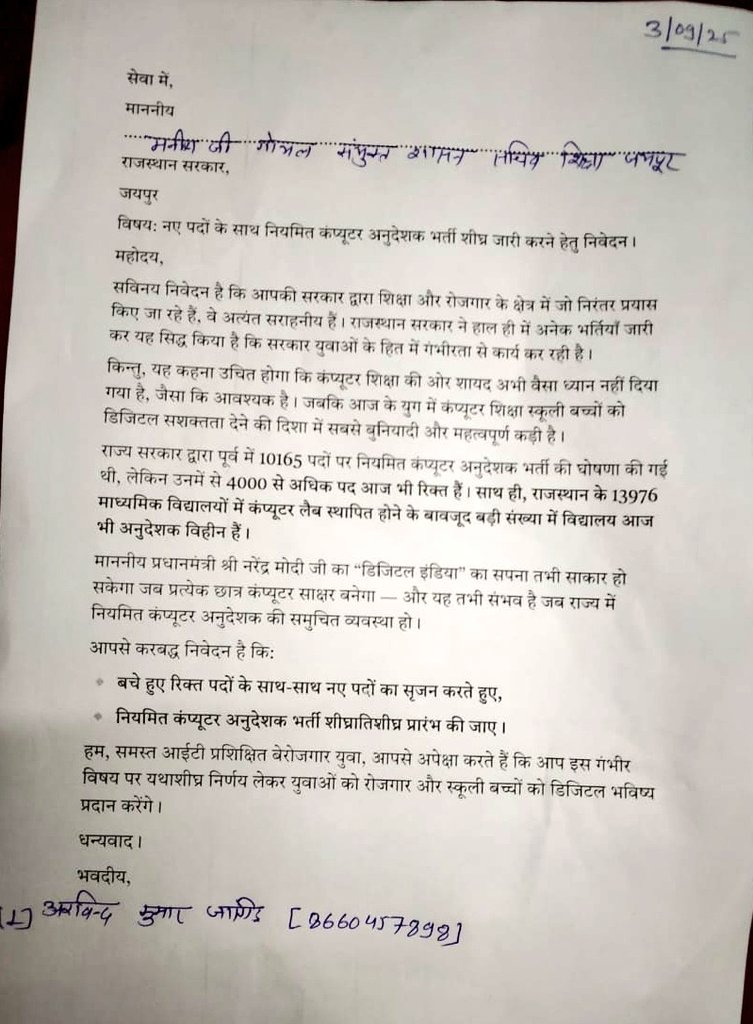 3/09/25
सेवा में,
माननीय
मनीष जी गोयल संयुक्त शासन सचिव शिक्षा जयपुर
राजस्थान सरकार,
जयपुर
विषय: नए पदों के साथ नियमित कंप्यूटर अनुदेशक भर्ती शीघ्र जारी करने हेतु निवेदन।
महोदय,
सविनय निवेदन है कि आपकी सरकार द्वारा शिक्षा और रोजगार के क्षेत्र में जो निरंतर प्रयास
किए जा रहे हैं, वे अत्यंत सराहनीय हैं। राजस्थान सरकार ने हाल ही में अनेक भर्तियाँ जारी
कर यह सिद्ध किया है कि सरकार युवाओं के हित में गंभीरता से कार्य कर रही है।
किन्तु, यह कहना उचित होगा कि कंप्यूटर शिक्षा की ओर शायद अभी वैसा ध्यान नहीं दिया
गया है, जैसा कि आवश्यक है। जबकि आज के युग में कंप्यूटर शिक्षा स्कूली बच्चों को
डिजिटल सशक्तता देने की दिशा में सबसे बुनियादी और महत्वपूर्ण कड़ी है।
राज्य सरकार द्वारा पूर्व में 10165 पदों पर नियमित कंप्यूटर अनुदेशक भर्ती की घोषणा की गई
थी, लेकिन उनमें से 4000 से अधिक पद आज भी रिक्त हैं। साथ ही, राजस्थान के 13976
माध्यमिक विद्यालयों में कंप्यूटर लैब स्थापित होने के बावजूद बड़ी संख्या में विद्यालय आज
भी अनुदेशक विहीन हैं।
माननीय प्रधानमंत्री श्री नरेंद्र मोदी जी का “डिजिटल इंडिया” का सपना तभी साकार हो
सकेगा जब प्रत्येक छात्र कंप्यूटर साक्षर बनेगा — और यह तभी संभव है जब राज्य में
नियमित कंप्यूटर अनुदेशक की समुचित व्यवस्था हो।
आपसे करबद्ध निवेदन है कि:
बचे हुए रिक्त पदों के साथ-साथ नए पदों का सृजन करते हुए,
नियमित कंप्यूटर अनुदेशक भर्ती शीघ्रातिशीघ्र प्रारंभ की जाए।
हम, समस्त आईटी प्रशिक्षित बेरोजगार युवा, आपसे अपेक्षा करते हैं कि आप इस गंभीर
विषय पर यथाशीघ्र निर्णय लेकर युवाओं को रोजगार और स्कूली बच्चों को डिजिटल भविष्य
प्रदान करेंगे।
धन्यवाद।
भवदीय,
[1] अरविन्द कुमार जांगिड [8660457898]